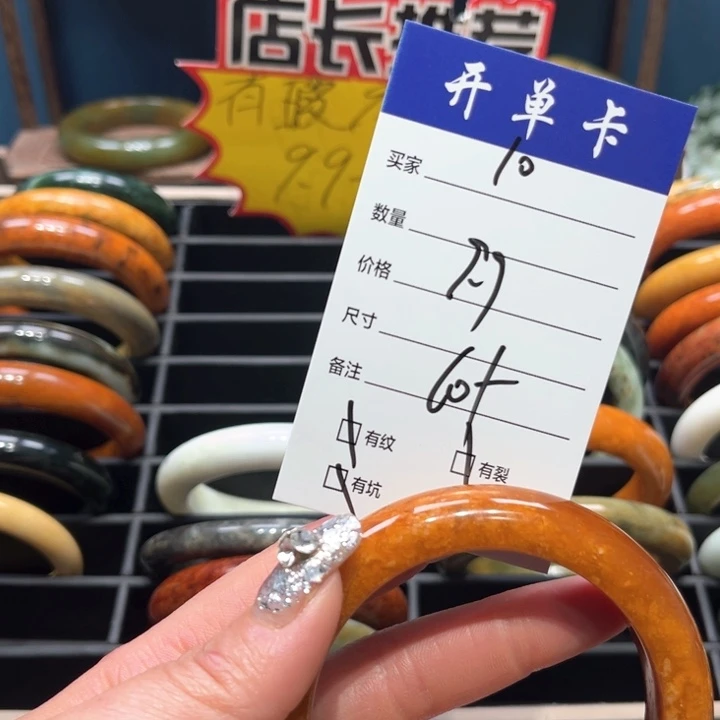 店长推荐
有瑕
9.9
开单卡
买家 10
数量
价格
尺寸
备注 60+
有纹 有裂
有坑